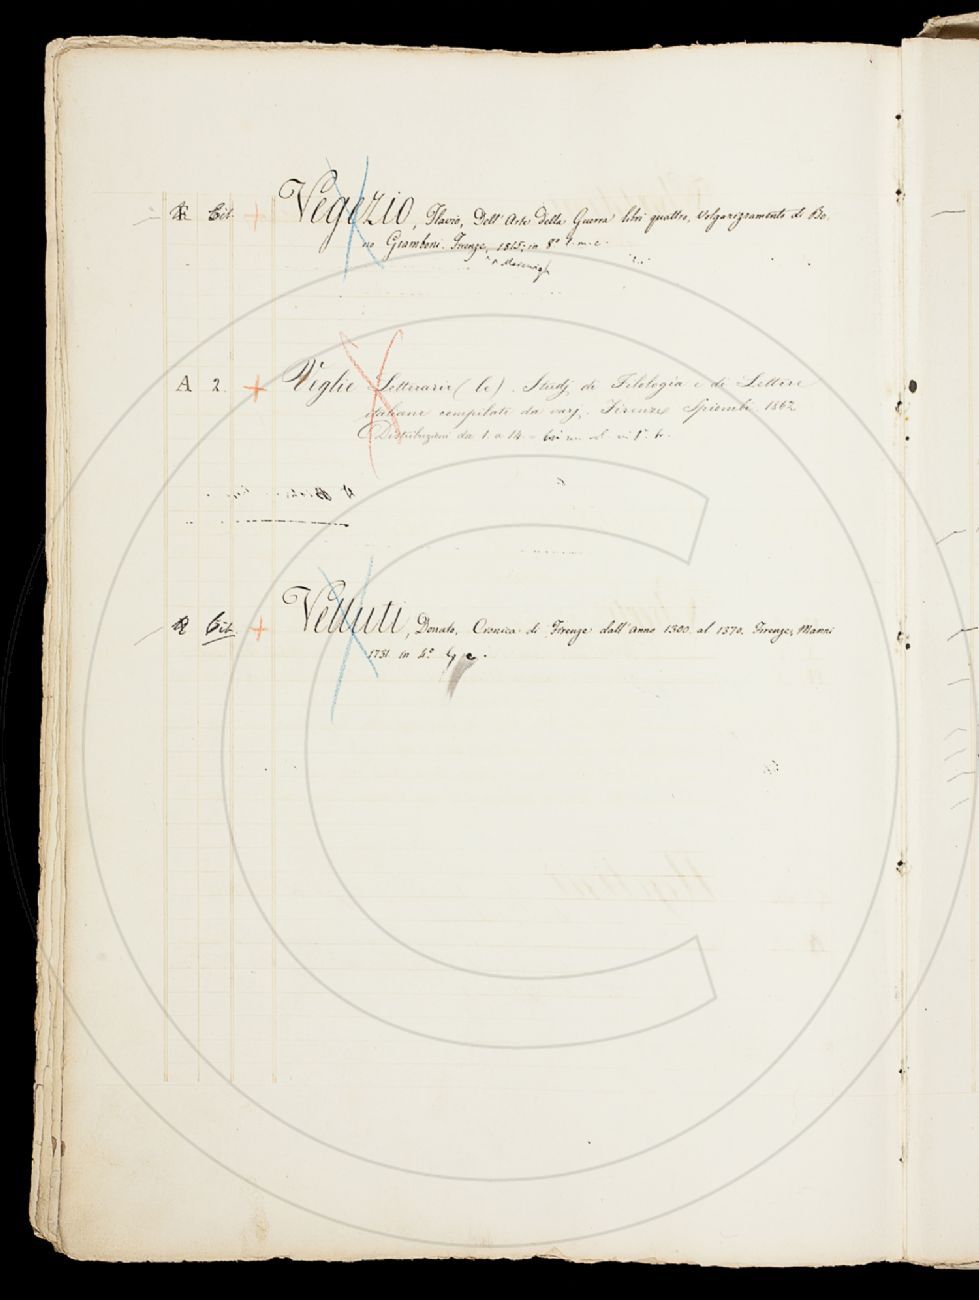 Cit. + Vegezio, Flavio, Dell' Arte della Guerra libri quattro, volgarizzamento di Bo-
no Giamboni. Firenze, 1815; in 8º
A 2. + Veglie Letterarie (le). Studj di Filologia e di Lettere
italiane compilate da varj. Firenze 1862
Distribuzioni da 1. a 14
Cit. + Velluti, Donato, Cronica di Firenze dall' anno 1300. al 1370. Firenze, Manni
1731 in 4º